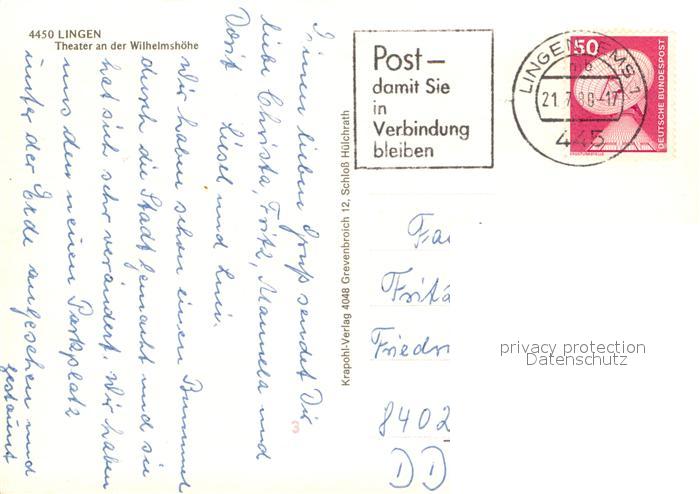 4450 LINGEN
Theater an der Wilhelmshöhe
Einen lieben Gruß sendet Dir
liebe Christa, Fritz, Manuela und
Dorit Liesel und
Wir haben schon einen Bummel
durch die Stadt gemacht und sie
hat sich sehr verändert. Wir haben
uns den neuen Parkplatz
unter der Erde angesehen und
gestaunt
Krapohl-Verlag 4048 Grevenbroich 12, Schloß Hülchrath
3
Post –
damit Sie
in
Verbindung
bleiben
LINGEN (EMS) 1
21.7.80-17
445
50
DEUTSCHE BUNDESPOST
Fa
Fritz
Friedr
8402
DD
privacy protection
Datenschutz